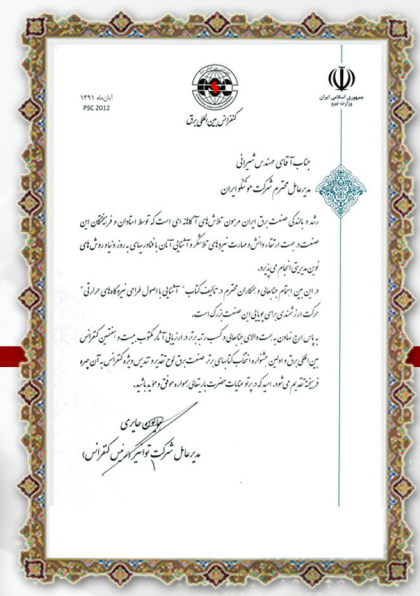 آبان‌ماه ۱۳۹۱
PSC 2012
کنفرانس بین المللی برق
جمهوری اسلامی ایران
وزارت نیرو
جناب آقای مهندس شیرانی
مدیرعامل محترم شرکت مونکو ایران
رشد و بالندگی صنعت برق ایران مرهون تلاش های آگاهانه ای است که توسط استادان و فرهیختگان این
صنعت در جهت ارتقاء دانش و مهارت نیروهای تلاشگر و آشنایی آنان با فناوریهای به روز دنیا و روش های
نوین مدیریتی انجام می پذیرد.
در این بین اهتمام جنابعالی و همکاران محترم در تالیف کتاب " آشنایی با اصول طراحی نیروگاههای حرارتی "
حرکت ارزشمندی برای پویایی این صنعت بزرگ است.
به پاس ارج نهادن به همت والای جنابعالی و کسب رتبه برتر در ارزیابی آثار مکتوب بیست و هفتمین کنفرانس
بین المللی برق و اولین جشنواره انتخاب کتابهای برتر صنعت برق لوح تقدیر و تندیس ویژه کنفرانس به آن چهره
فرهیخته تقدیم می شود. امید که در پرتو عنایات حضرت باریتعالی همواره موفق و مؤید باشید.
همایون حایری
مدیرعامل شرکت توانیر (رئیس کنفرانس)